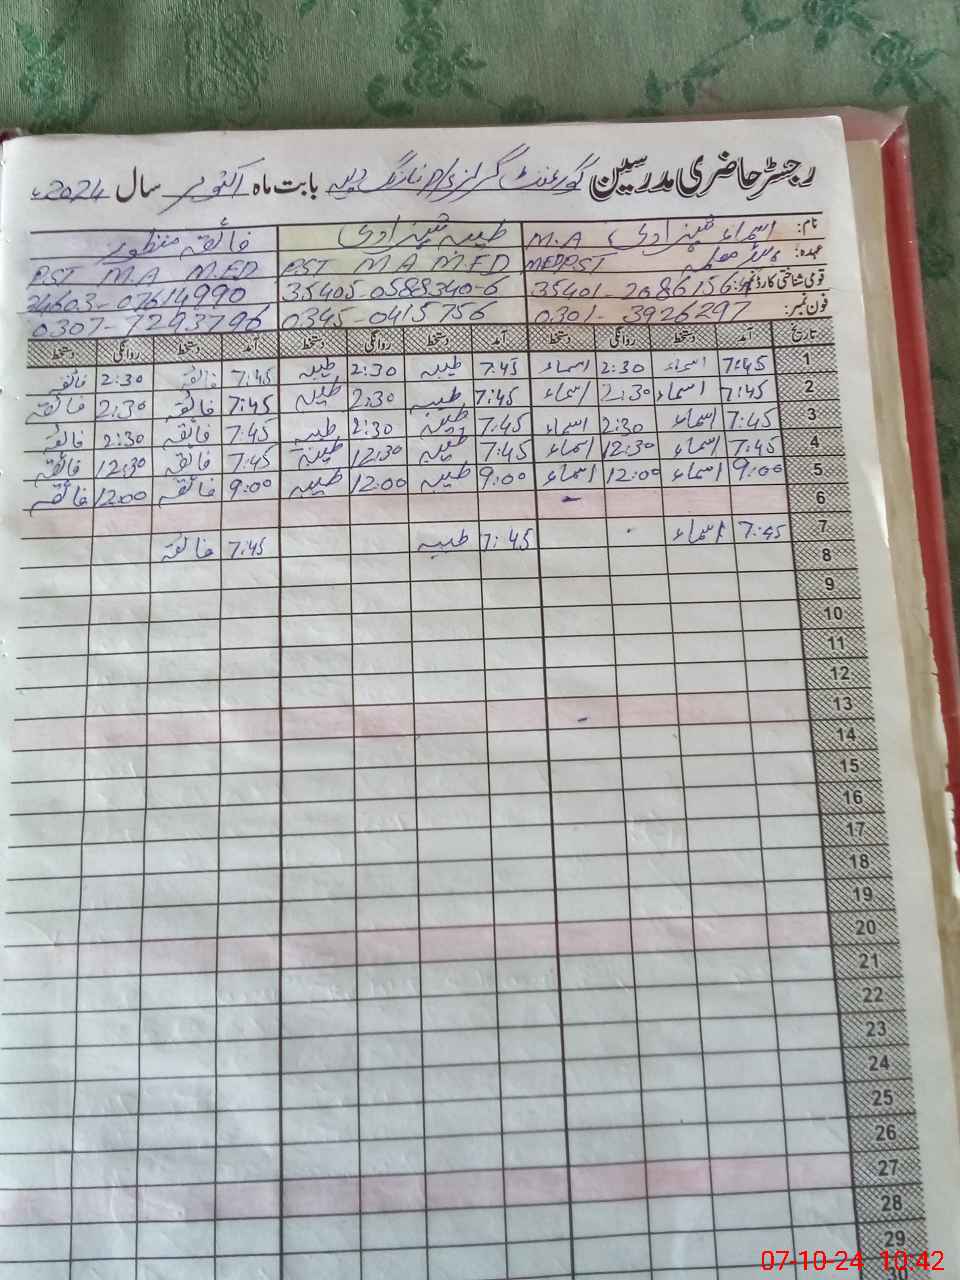 رجسٹر حاضری مدرسین گورنمنٹ گرلز پی/ نانگل بابت ماہ اکتوبر سال 2024ء
نام: اسماء شہزادی M.A طیبہ شہزادی فائقہ منظور
عہدہ: MEDPST PST M A M.ED PST M A M.ED
قومی شناختی کارڈ نمبر: 35405-0588340-6 24603-07614990
فون نمبر: 0301-3926297 0345-0415756 0307-7293796
تاریخ آمد دستخط روانگی دستخط آمد دستخط روانگی دستخط آمد دستخط روانگی دستخط
1 7:45 اسماء 2:30 اسماء 7:45 طیبہ 2:30 طیبہ 7:45 فائقہ 2:30 فائقہ
2 7:45 اسماء 2:30 اسماء 7:45 طیبہ 2:30 طیبہ 7:45 فائقہ 2:30 فائقہ
3 7:45 اسماء 2:30 اسماء 7:45 طیبہ 2:30 طیبہ 7:45 فائقہ 2:30 فائقہ
4 7:45 اسماء 12:30 اسماء 7:45 طیبہ 12:30 طیبہ 7:45 فائقہ 12:30 فائقہ
5 9:00 اسماء 12:00 اسماء 9:00 طیبہ 12:00 طیبہ 9:00 فائقہ 12:00 فائقہ
6
7 7:45 اسماء 7:45 طیبہ 7:45 فائقہ
8
9
10
11
12
13
14
15
16
17
18
19
20
21
22
23
24
25
26
27
28
29
07-10-24 10:42